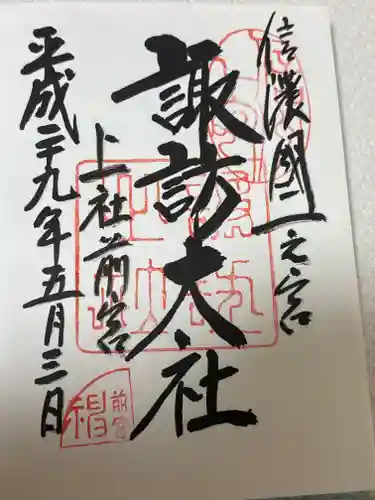 信濃國一之宮
諏訪大社
上社前宮
平成二十九年五月三日
前宮